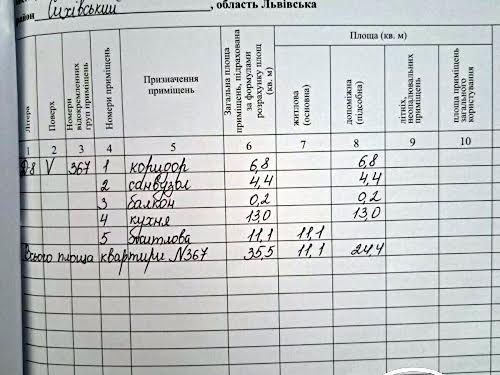 район Сихівський, область Львівська
Літера
Поверх
Номери відокремлених груп приміщень
Номери приміщень
Призначення приміщень
Загальна площа приміщень, підрахована за формулами розрахунку площ (кв. м)
Площа (кв. м)
житлова (основна)
допоміжна (підсобна)
літніх, неопалювальних приміщень
площа приміщень загального користування
1 2 3 4 5 6 7 8 9 10
V 367 1 коридор 6,8 6,8
2 санвузол 4,4 4,4
3 балкон 0,2 0,2
4 кухня 13,0 13,0
5 житлова 11,1 11,1
Всього площа квартири N367 35,5 11,1 24,4